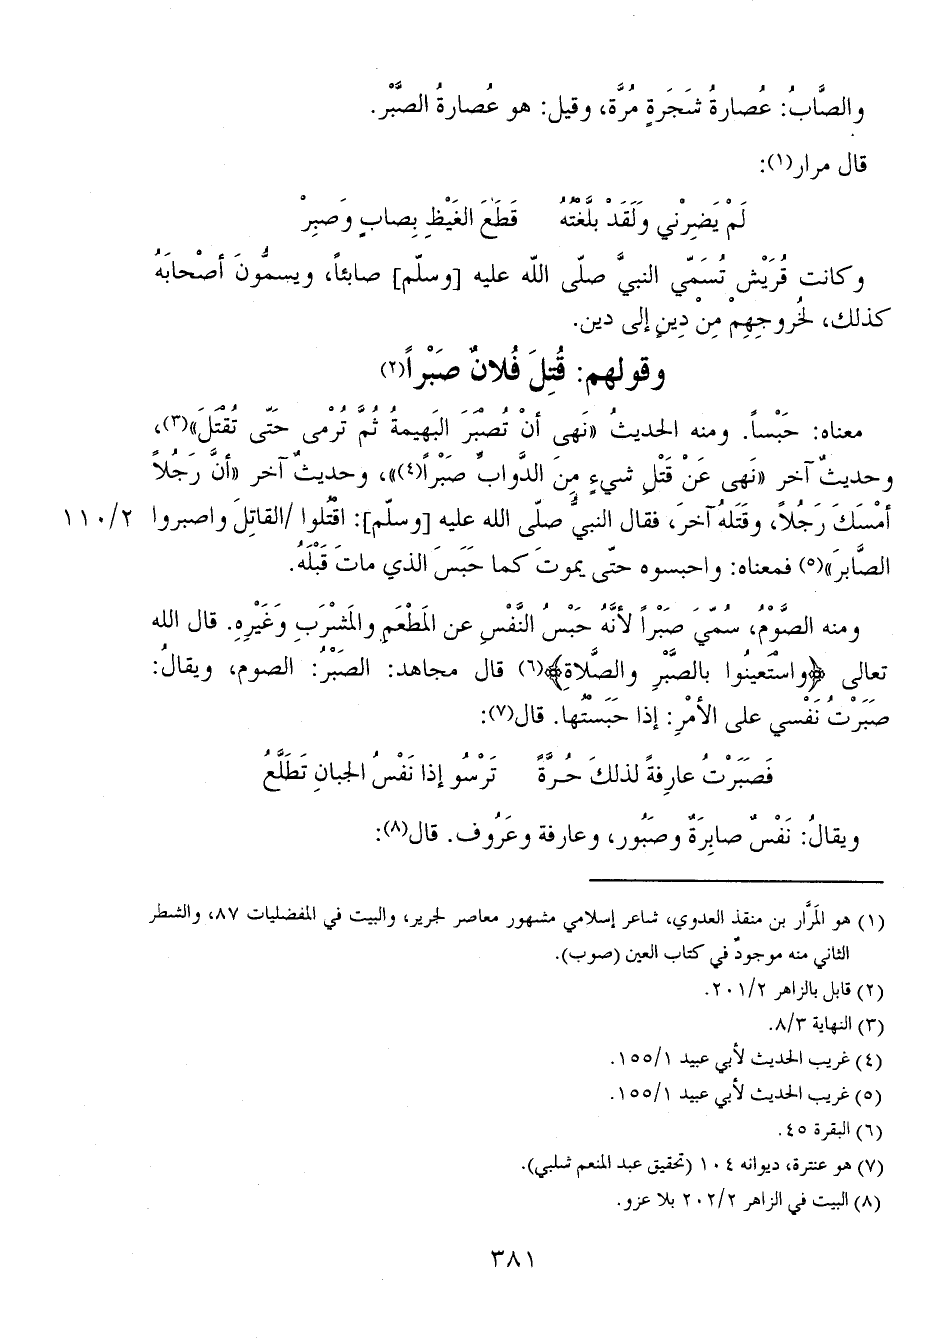 والصَّابُ: عُصارةُ شَجَرَةٍ مُرَّة، وقيل: هو عُصارةُ الصَّبْر.
قال مرار(١):
لَمْ يَضِرْني وَلَقَدْ بلَّغْتُهُ قَطَعَ الغَيْظِ بِصابٍ وَصَبِرْ
وكانت قُرَيْش تُسَمّي النبيَّ صلّى الله عليه [وسلّم] صابئاً، ويسمُّونَ أصْحابَهُ
كذلك، لخُروجِهِمْ مِنْ دِينٍ إلى دين.
وقولهم: قُتِلَ فُلانٌ صَبْراً(٢)
معناه: حَبْساً. ومنه الحديثُ «نَهى أنْ تُصْبَرَ البَهيمةُ ثُمَّ تُرْمى حَتّى تُقْتَلَ»(٣)،
وحديثٌ آخر «نَهى عَنْ قَتْلِ شيءٍ مِنَ الدَّوابِّ صَبْراً(٤)»، وحديثٌ آخر «أنَّ رَجُلاً
أمْسَكَ رَجُلاً، وقَتَلهُ آخرَ، فقال النبيُّ صلّى الله عليه [وسلّم]: اقْتُلوا /القاتِلَ واصبروا ١١٠/٢
الصَّابرَ»(٥) فمعناه: واحبسوه حتّى يموتَ كما حَبَسَ الذي ماتَ قَبْلَهُ.
ومنه الصَّوْمُ، سُمّيَ صَبْراً لأنَّهُ حَبْسُ النَّفْسِ عن المَطْعَمِ والمَشْرَبِ وَغَيْرِهِ. قال الله
تعالى ﴿واسْتَعينُوا بالصَّبْرِ والصَّلاةِ﴾(٦) قال مجاهد: الصَّبْرُ: الصوم، ويقالُ:
صَبَرْتُ نَفْسي على الأمْرِ: إذا حَبَسْتُها. قال(٧):
فَصَبَرْتُ عارِفةً لذلكَ حُرَّةً تَرْسُو إذا نَفْسُ الجبانِ تَطَلَّعُ
ويقالُ: نَفْسٌ صابِرَةٌ وصَبُور، وعارفة وعَرُوف. قال(٨):
(١) هو المَرَّار بن منقذ العدوي، شاعر إسلامي مشهور معاصر لجرير، والبيت في المفضليات ٨٧، والشطر
الثاني منه موجودٌ في كتاب العين (صوب).
(٢) قابل بالزاهر ٢٠١/٢.
(٣) النهاية ٨/٣.
(٤) غريب الحديث لأبي عبيد ١٥٥/١.
(٥) غريب الحديث لأبي عبيد ١٥٥/١.
(٦) البقرة ٤٥.
(٧) هو عنترة، ديوانه ١٠٤ (تحقيق عبد المنعم شلبي).
(٨) البيت في الزاهر ٢٠٢/٢ بلا عزو.
٣٨١